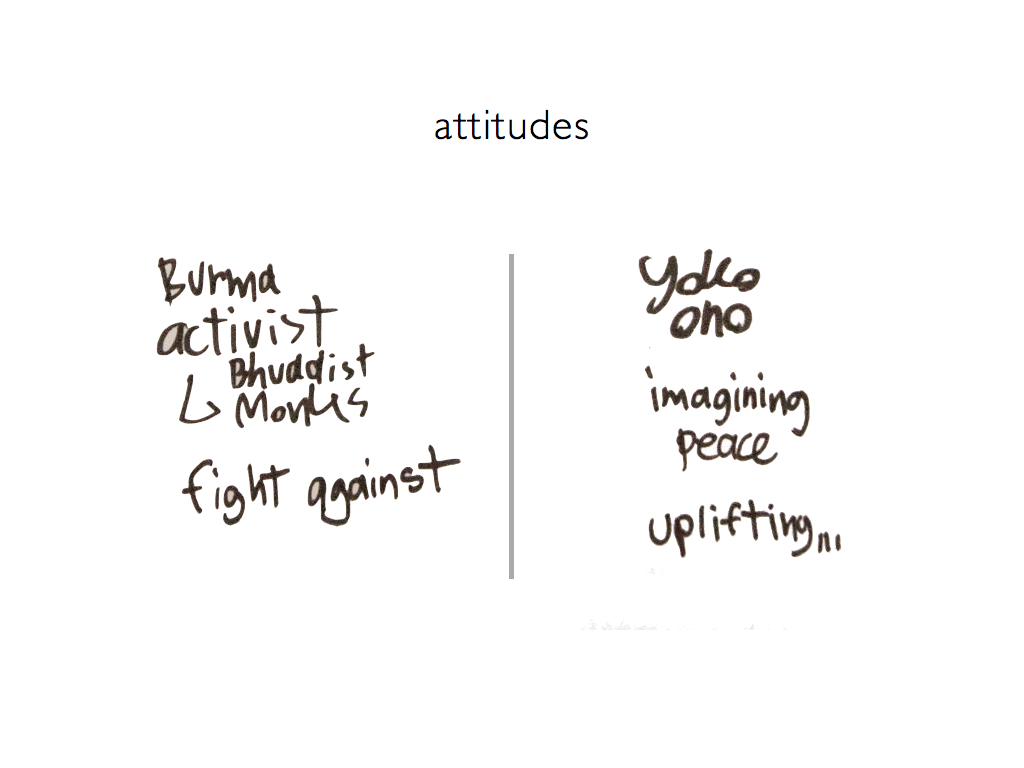 attitudes
Burma
activist
Bhuddist
Monks
fight against
yoko
ono
imagining
peace
uplifting...